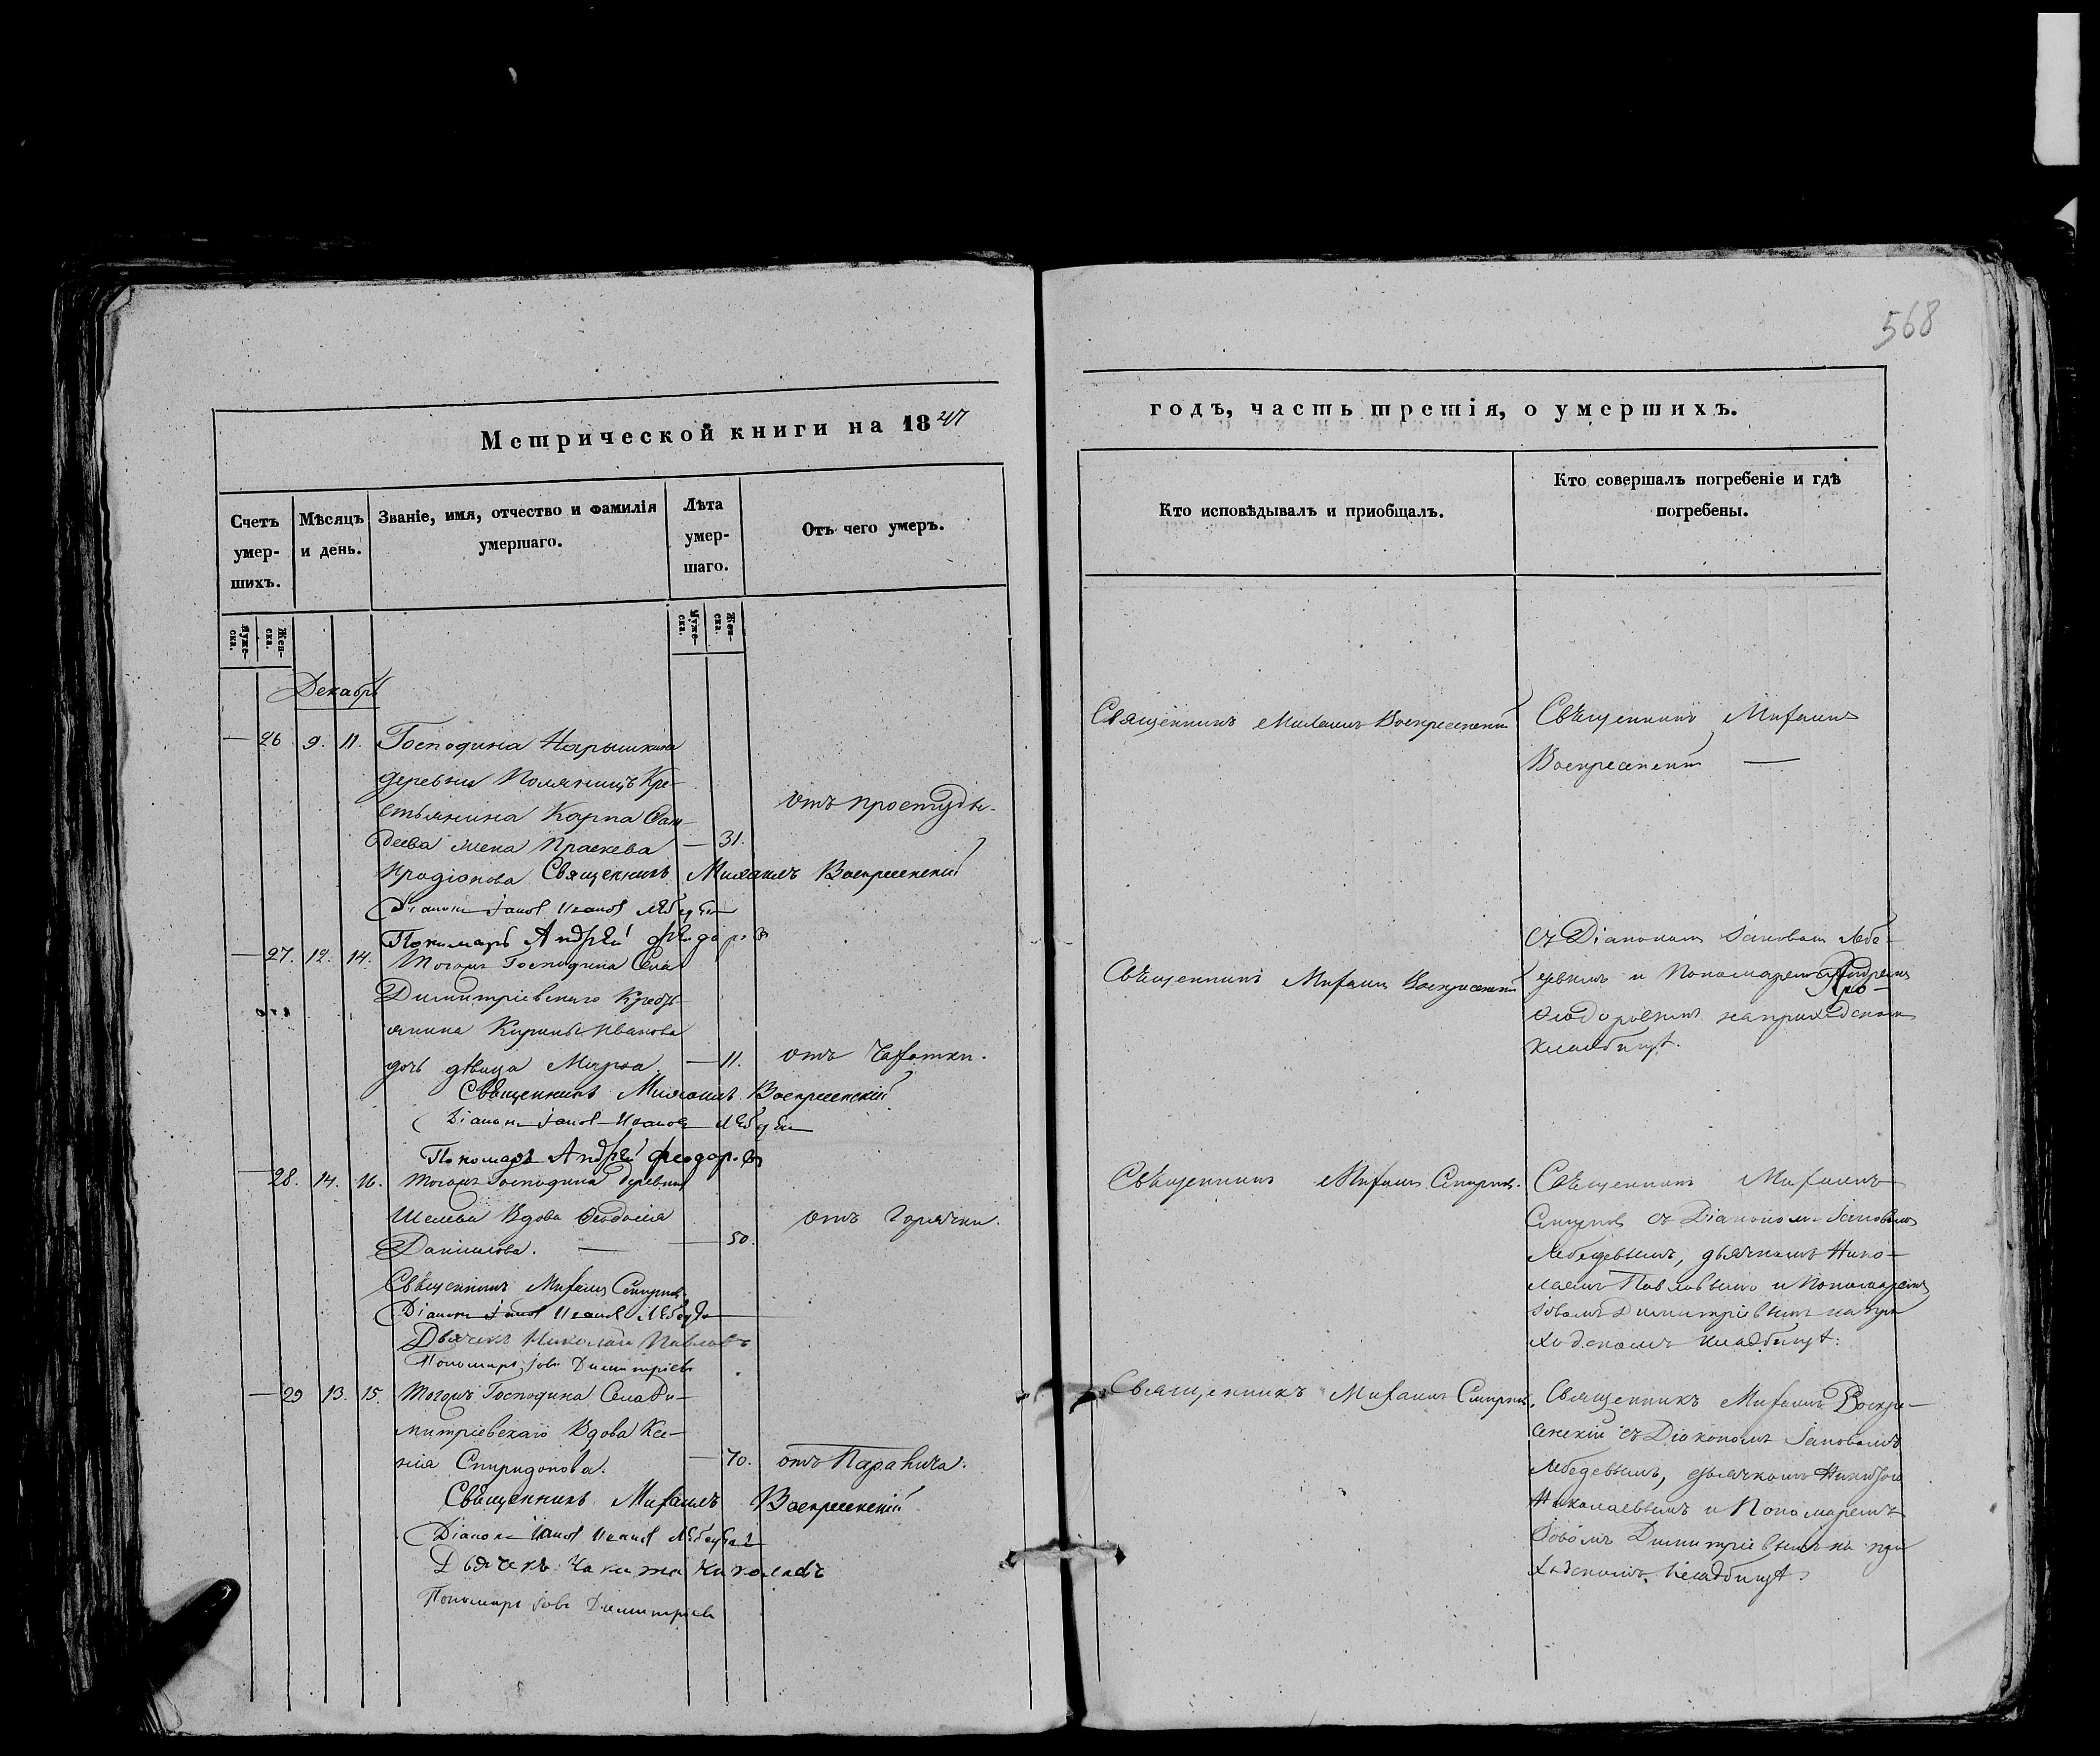 568
Метрической книги на 1847
годъ, часть третія, о умершихъ.
Счетъ умер-шихъ.
Мѣсяцъ и день.
Званіе, имя, отчество и фамилія умершаго.
Лѣта умер-шаго.
Отъ чего умеръ.
Кто исповѣдывалъ и приобщалъ.
Кто совершалъ погребеніе и гдѣ погребены.
Муже-ска.
Жен-ска.
Муже-ска.
Жен-ска.
Декабрь
— 26. 9. 11. Господина Нарышкина
деревни Поляницъ Кре-
стьянина Карпа Фад-
деева жена Праскева — 31. отъ простуды.
Иродіонова Священникъ Михаилъ Воскресенскій
Діаконъ Іаковъ Ивановъ Лебедевъ
Пономарь Андрѣй Феодоровъ
Священникъ Михаилъ Воскресенскій
Священникъ Михаилъ
Воскресенскій —
— 27. 12. 14. Тогожъ Господина Села
Димитріевскаго Кресть-
янина Кирилы Иванова
дочь дѣвица Марѳа — 11. отъ Чахотки.
Священникъ Михаилъ Воскресенскій
Діаконъ Іаковъ Ивановъ Лебедевъ
Пономарь Андрѣй Феодоровъ
Священникъ Михаилъ Воскресенскій
съ Діакономъ Іаковомъ Лебе-
девымъ и Пономаремъ Андреемъ
Ѳеодоровымъ на приходскомъ
кладбищѣ.
— 28. 14. 16. Тогожъ Господина деревни
Вдова Ѳеодосія
Даніилова. — — 50. отъ Горячки.
Священникъ Михаилъ Смирновъ
Діаконъ Іаковъ Ивановъ Лебедевъ
Дьячекъ Николай Павловъ
Пономарь Іовъ Димитріевъ
Священникъ Михаилъ Смирновъ.
Священникъ Михаилъ
Смирновъ съ Діакономъ Іаковомъ
Лебедевымъ, дьячкомъ Нико-
лаемъ Павловымъ и Пономаремъ
Іовомъ Димитріевымъ на при
ходскомъ кладбищѣ.
— 29 13. 15. Тогожъ Господина Села Ди-
митріевскаго Вдова Ксе-
нія Спиридонова. — 70. отъ Паралича.
Священникъ Михаилъ Воскресенскій
Діаконъ Іаковъ Ивановъ Лебедевъ
Дьячекъ Никита Николаевъ
Пономарь Іовъ Димитріевъ
Священникъ Михаилъ Смирновъ.
Священникъ Михаилъ Воскре-
сенскій съ Діакономъ Іаковомъ
Лебедевымъ, дьячкомъ Никитою
Николаевымъ и Пономаремъ
Іовомъ Димитріевымъ на при
ходскомъ кладбищѣ.